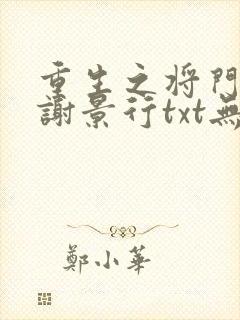 重生之将門
謝景行txt無
鄭小華